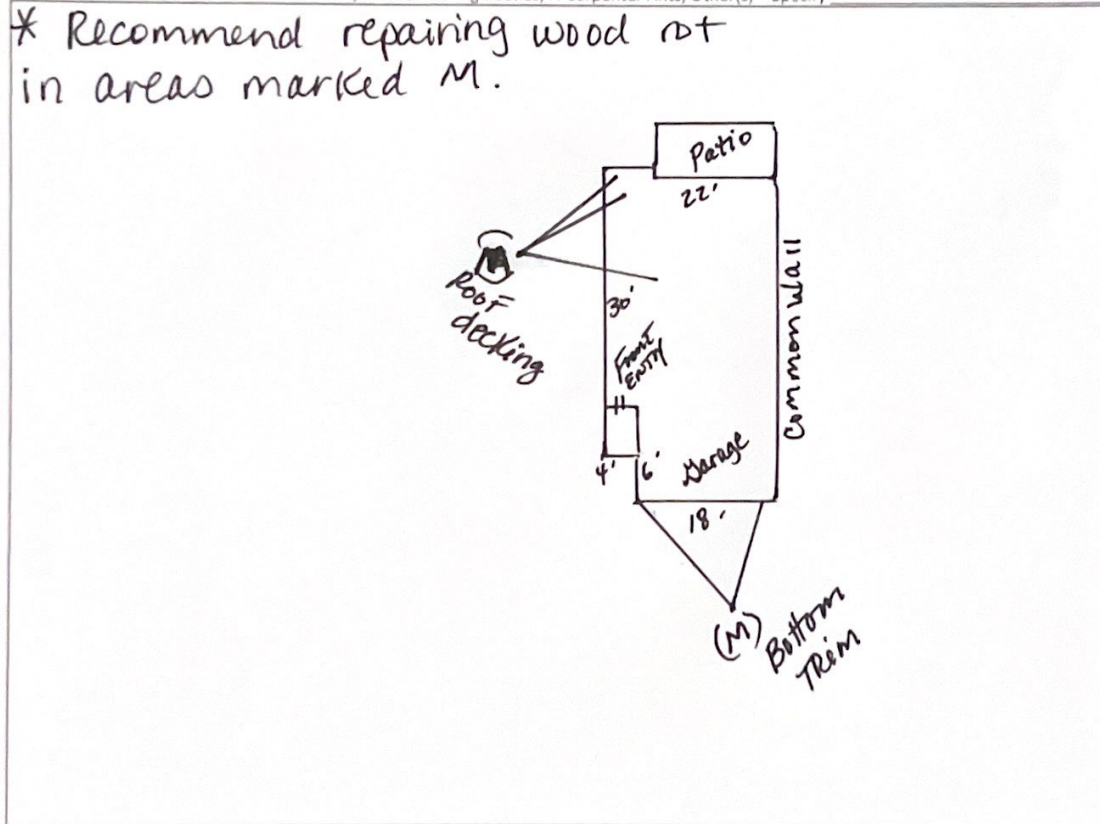 * Recommend repairing wood rot
in areas marked M.
Patio
22'
M
Roof
decking
30'
Common Wall
Front
Entry
4'
6'
Garage
18'
(M)
Bottom
Trim